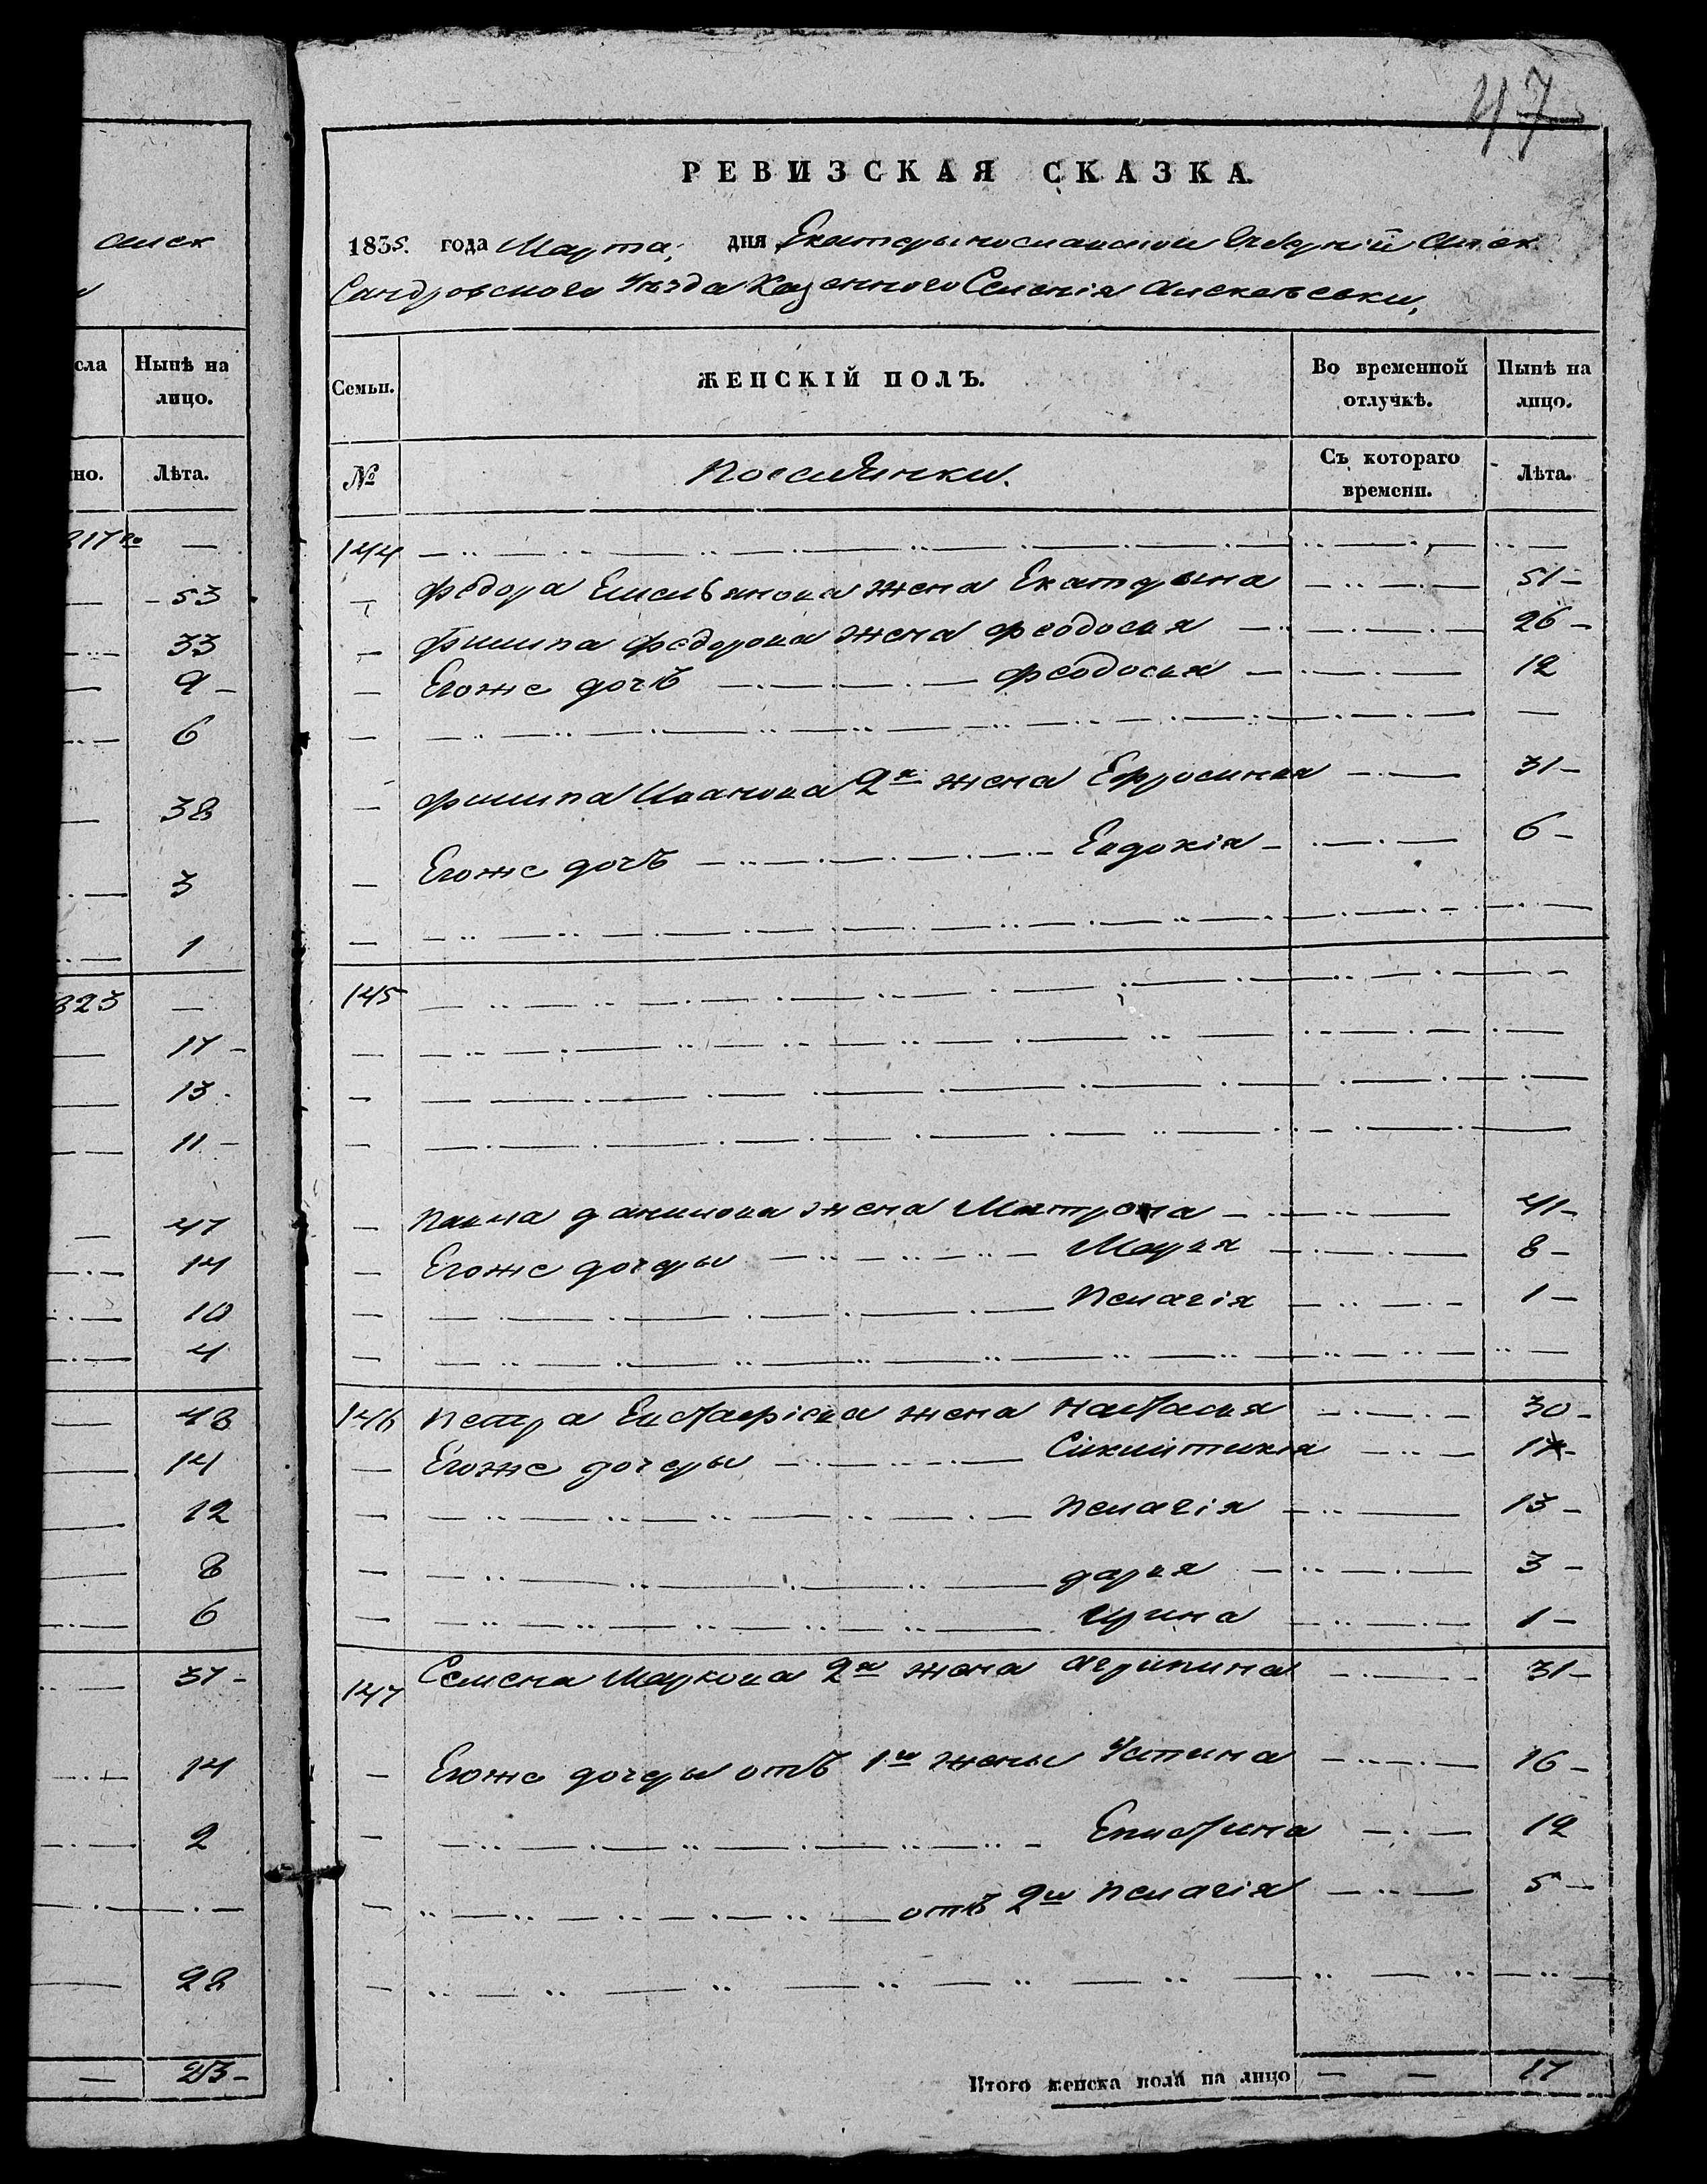 47
РЕВИЗСКАЯ СКАЗКА.
1835. года Марта, дня Екатеринославской Губерніи Алек
Сандровского Уезда Казенного Селенія Алексеевки,
Семьи. ЖЕНСКІЙ ПОЛЪ. Во временной отлучкѣ. Нынѣ на лицо.
№ Поселянки. Съ котораго времени. Лѣта.
144
Федора Емельянова жена Екатерина 51
Филипа Федорова жена Феодосия 26
Егоже дочъ Феодосия 12
Филипа Иванова 2я жена Ефросиния 31
Егоже дочъ Евдокія 6
145
Павла Данилова жена Матрона 41
Егоже дочеры Марья 8
Пелагія 1
146 Петра Евстафіева жена Настасия 30
Егоже дочеры
Пелагія 13
Дарья 3
Ирина 1
147 Семена Маркова 2я жена Агрипина 31
Егоже дочеры отъ 1й жены Устина 16
Епистина 12
отъ 2й Пелагія 5
Итого женска пола на лицо 17
алек
сла Нынѣ на лицо.
но. Лѣта.
817го
53
33
9
6
38
3
1
823
17
13
11
47
14
10
4
48
14
12
8
6
37
14
2
28
23